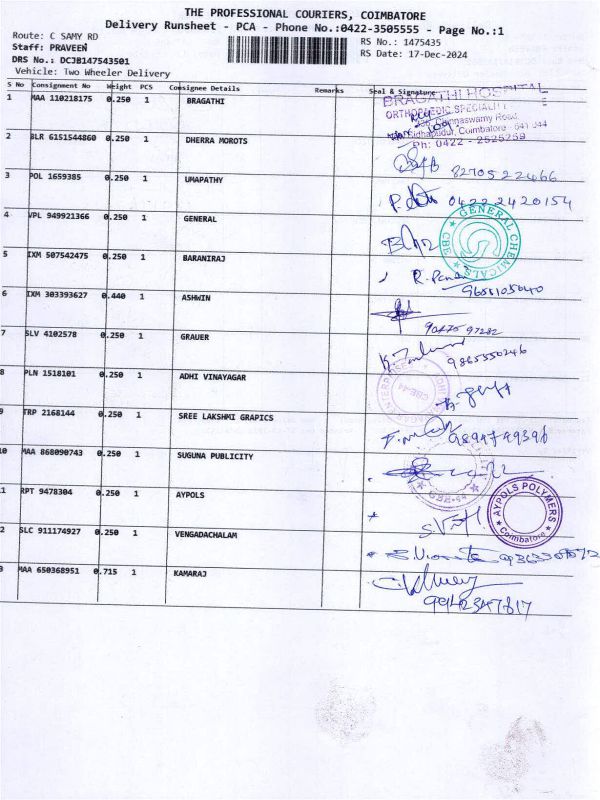 THE PROFESSIONAL COURIERS, COIMBATORE
Delivery Runsheet - PCA - Phone No.:0422-3505555 - Page No.:1
Route: C SAMY RD
RS No.: 1475435
Staff: PRAVEEN
RS Date: 17-Dec-2024
DRS No.: DCJB147543501
Vehicle: Two Wheeler Delivery
S No Consignment No Weight PCS Consignee Details Remarks Seal & Signature
1 MAA 110218175 0.250 1 BRAGATHI
BRAGATHI HOSPITAL
ORTHOPAEDIC SPECIALITY
Chinnaswamy Road,
Siddhapudur, Coimbatore - 641 044
Ph: 0422 - 2525259
2 BLR 6151544860 0.250 1 DHERRA MOROTS
8270522466
3 POL 1659385 0.250 1 UMAPATHY
0422 2420154
4 VPL 949921366 0.250 1 GENERAL
GENERAL CHEMICALS CBE
5 IXM 507542475 0.250 1 BARANIRAJ
9655105040
6 IXM 303393627 0.440 1 ASHWIN
90475 97282
7 SLV 4102578 0.250 1 GRAUER
9885550246
8 PLN 1518101 0.250 1 ADHI VINAYAGAR
CBE-44
9 TRP 2168144 0.250 1 SREE LAKSHMI GRAPICS
9894749396
10 MAA 868090743 0.250 1 SUGUNA PUBLICITY
CBE-44
11 RPT 9478304 0.250 1 AYPOLS
AYPOLS POLYMERS Coimbatore
12 SLC 911174927 0.250 1 VENGADACHALAM
13 MAA 650368951 0.715 1 KAMARAJ
9942347617